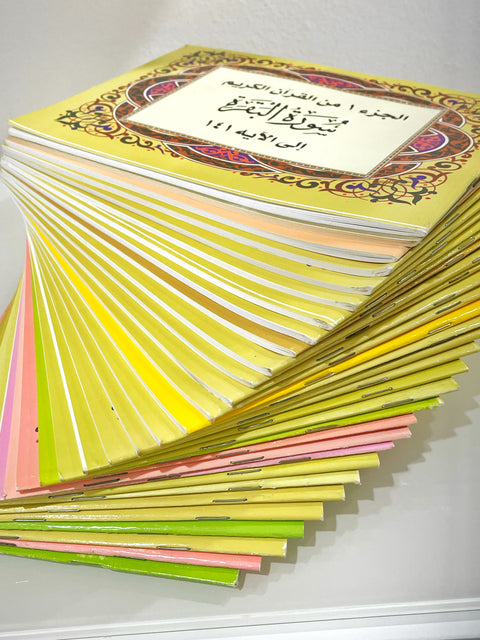 الجزء ١ من القرآن الكريم
سورة البقرة
إلى الآية ١٤١